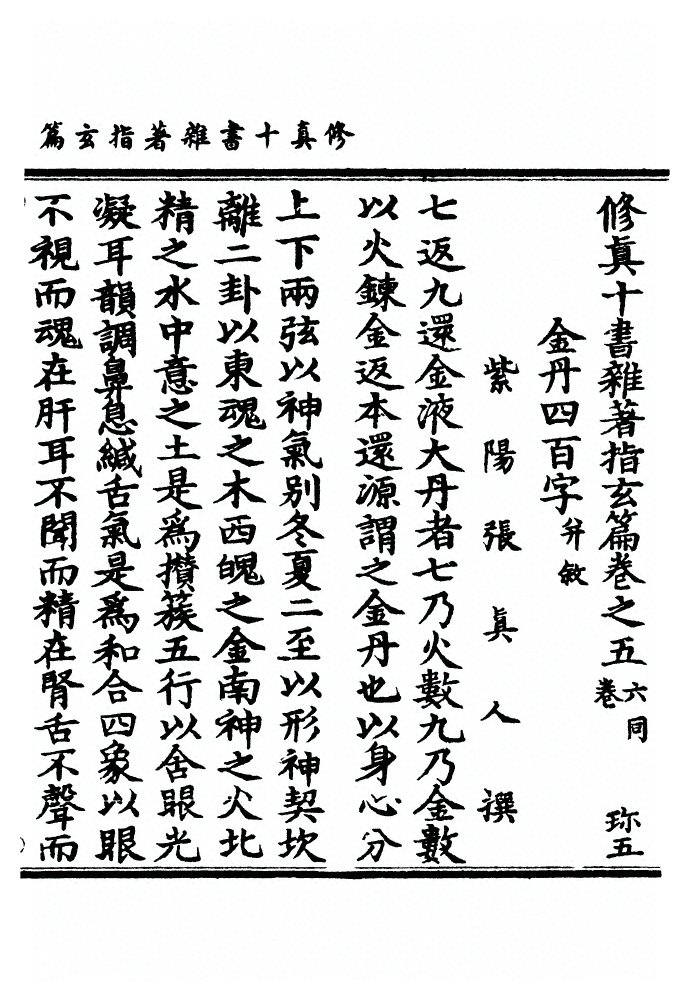 修眞十書雜著指玄篇
修眞十書雜著指玄篇卷之五 六同卷 珎五
金丹四百字 并敘
紫陽張眞人撰
七返九還金液大丹者七乃火數九乃金數
以火鍊金返本還源謂之金丹也以身心分
上下兩弦以神氣別冬夏二至以形神契坎
離二卦以東魂之木西魄之金南神之火北
精之水中意之土是爲攢簇五行以舍眼光
凝耳韻調鼻息緘舌氣是爲和合四象以眼
不視而魂在肝耳不聞而精在腎舌不聲而